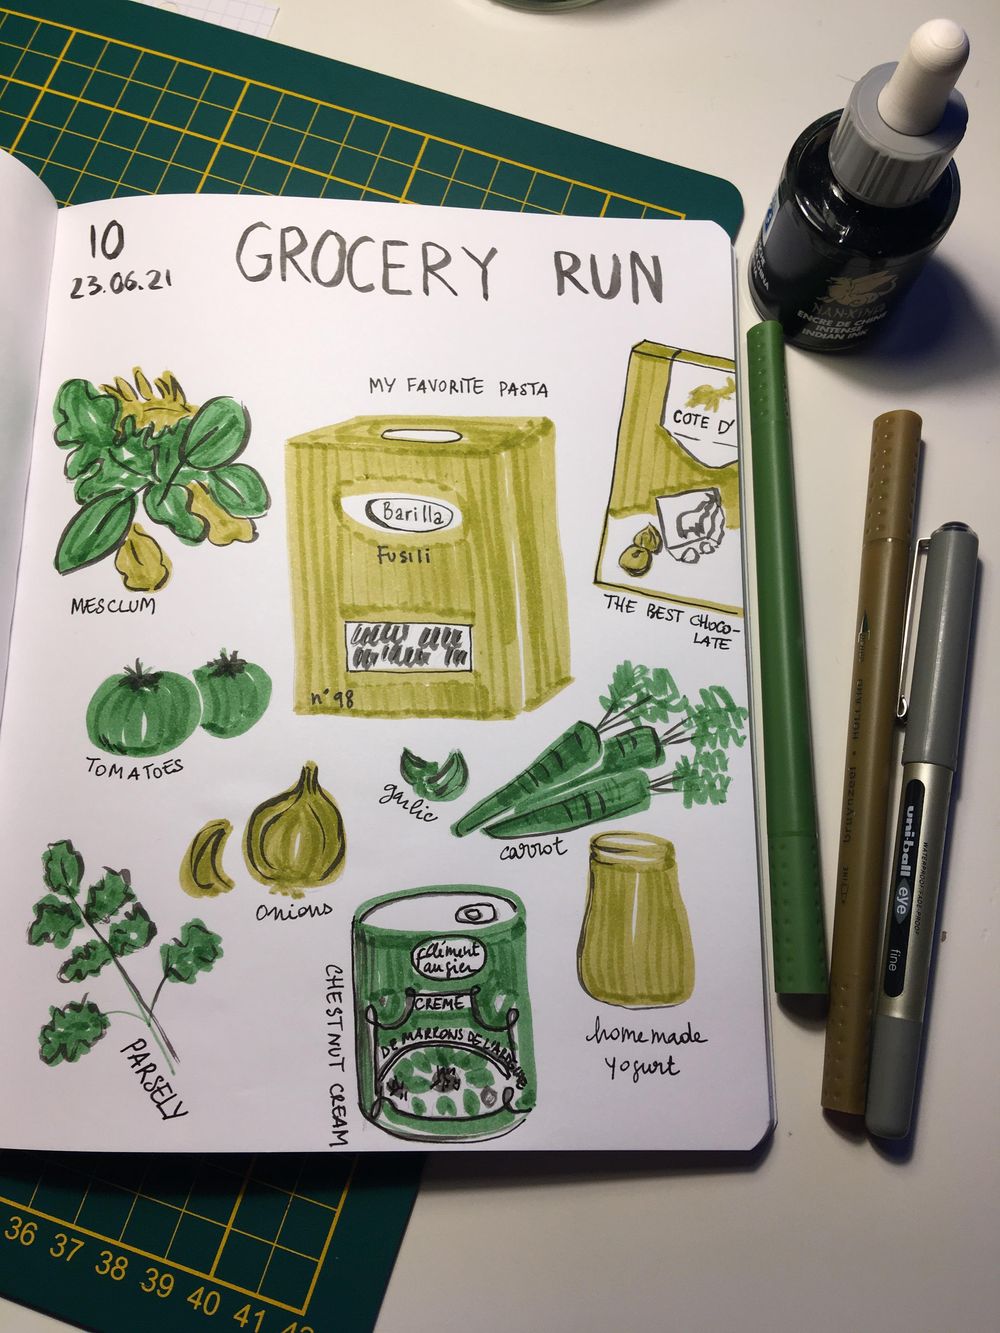 10
23.06.21
GROCERY RUN
MY FAVORITE PASTA
Barilla
Fusili
n°98
COTE D'
THE BEST CHOCO-
LATE
MESCLUM
TOMATOES
garlic
carrot
onions
PARSELY
CHESTNUT CREAM
Clément
augier
CREME
DE MARRONS DE L'ARDECHE
homemade
yogurt
NAN-KING
ENCRE DE CHINE
INTENSE
INDIAN INK
bruynzeel • HOLLAND
FINE
uni-ball eye
fine
WATERPROOF/FADE-PROOF
36 37 38 39 40 41 42